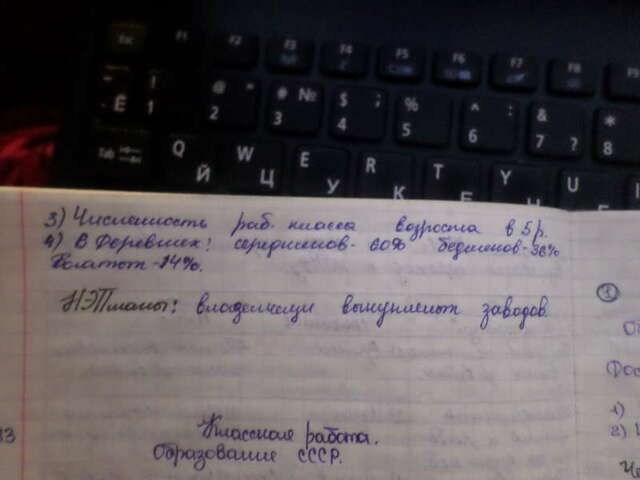 Esc F1 F2 F3 F4 F5 F6 F7 F8
~ ! @ " # № $ ; % ^ : & *
Ё 1 2 3 4 5 6 7 ? 8
Tab Q W E R T Y U
Й Ц У К Е Н
3) Численность раб. класса возроста в 5 р.
4) В деревнях: середняков - 60% бедняков - 26%
Богатых - 14%.
НЭПманы: владельцы выкупленых заводов.
Классная работа.
Образование СССР.
1
1)
2)